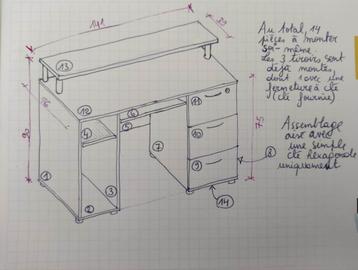 141
39
Au total, 14
pièces à monter
soi-même.
Les 3 tiroirs sont
déjà montés,
dont 1 avec une
fermeture à clé
(clé fournie)
13
56
90
12
11
75
4
6
5
10
Assemblage
aisé avec
une simple
clé hexagonale
uniquement
7
9
8
1
3
2
14